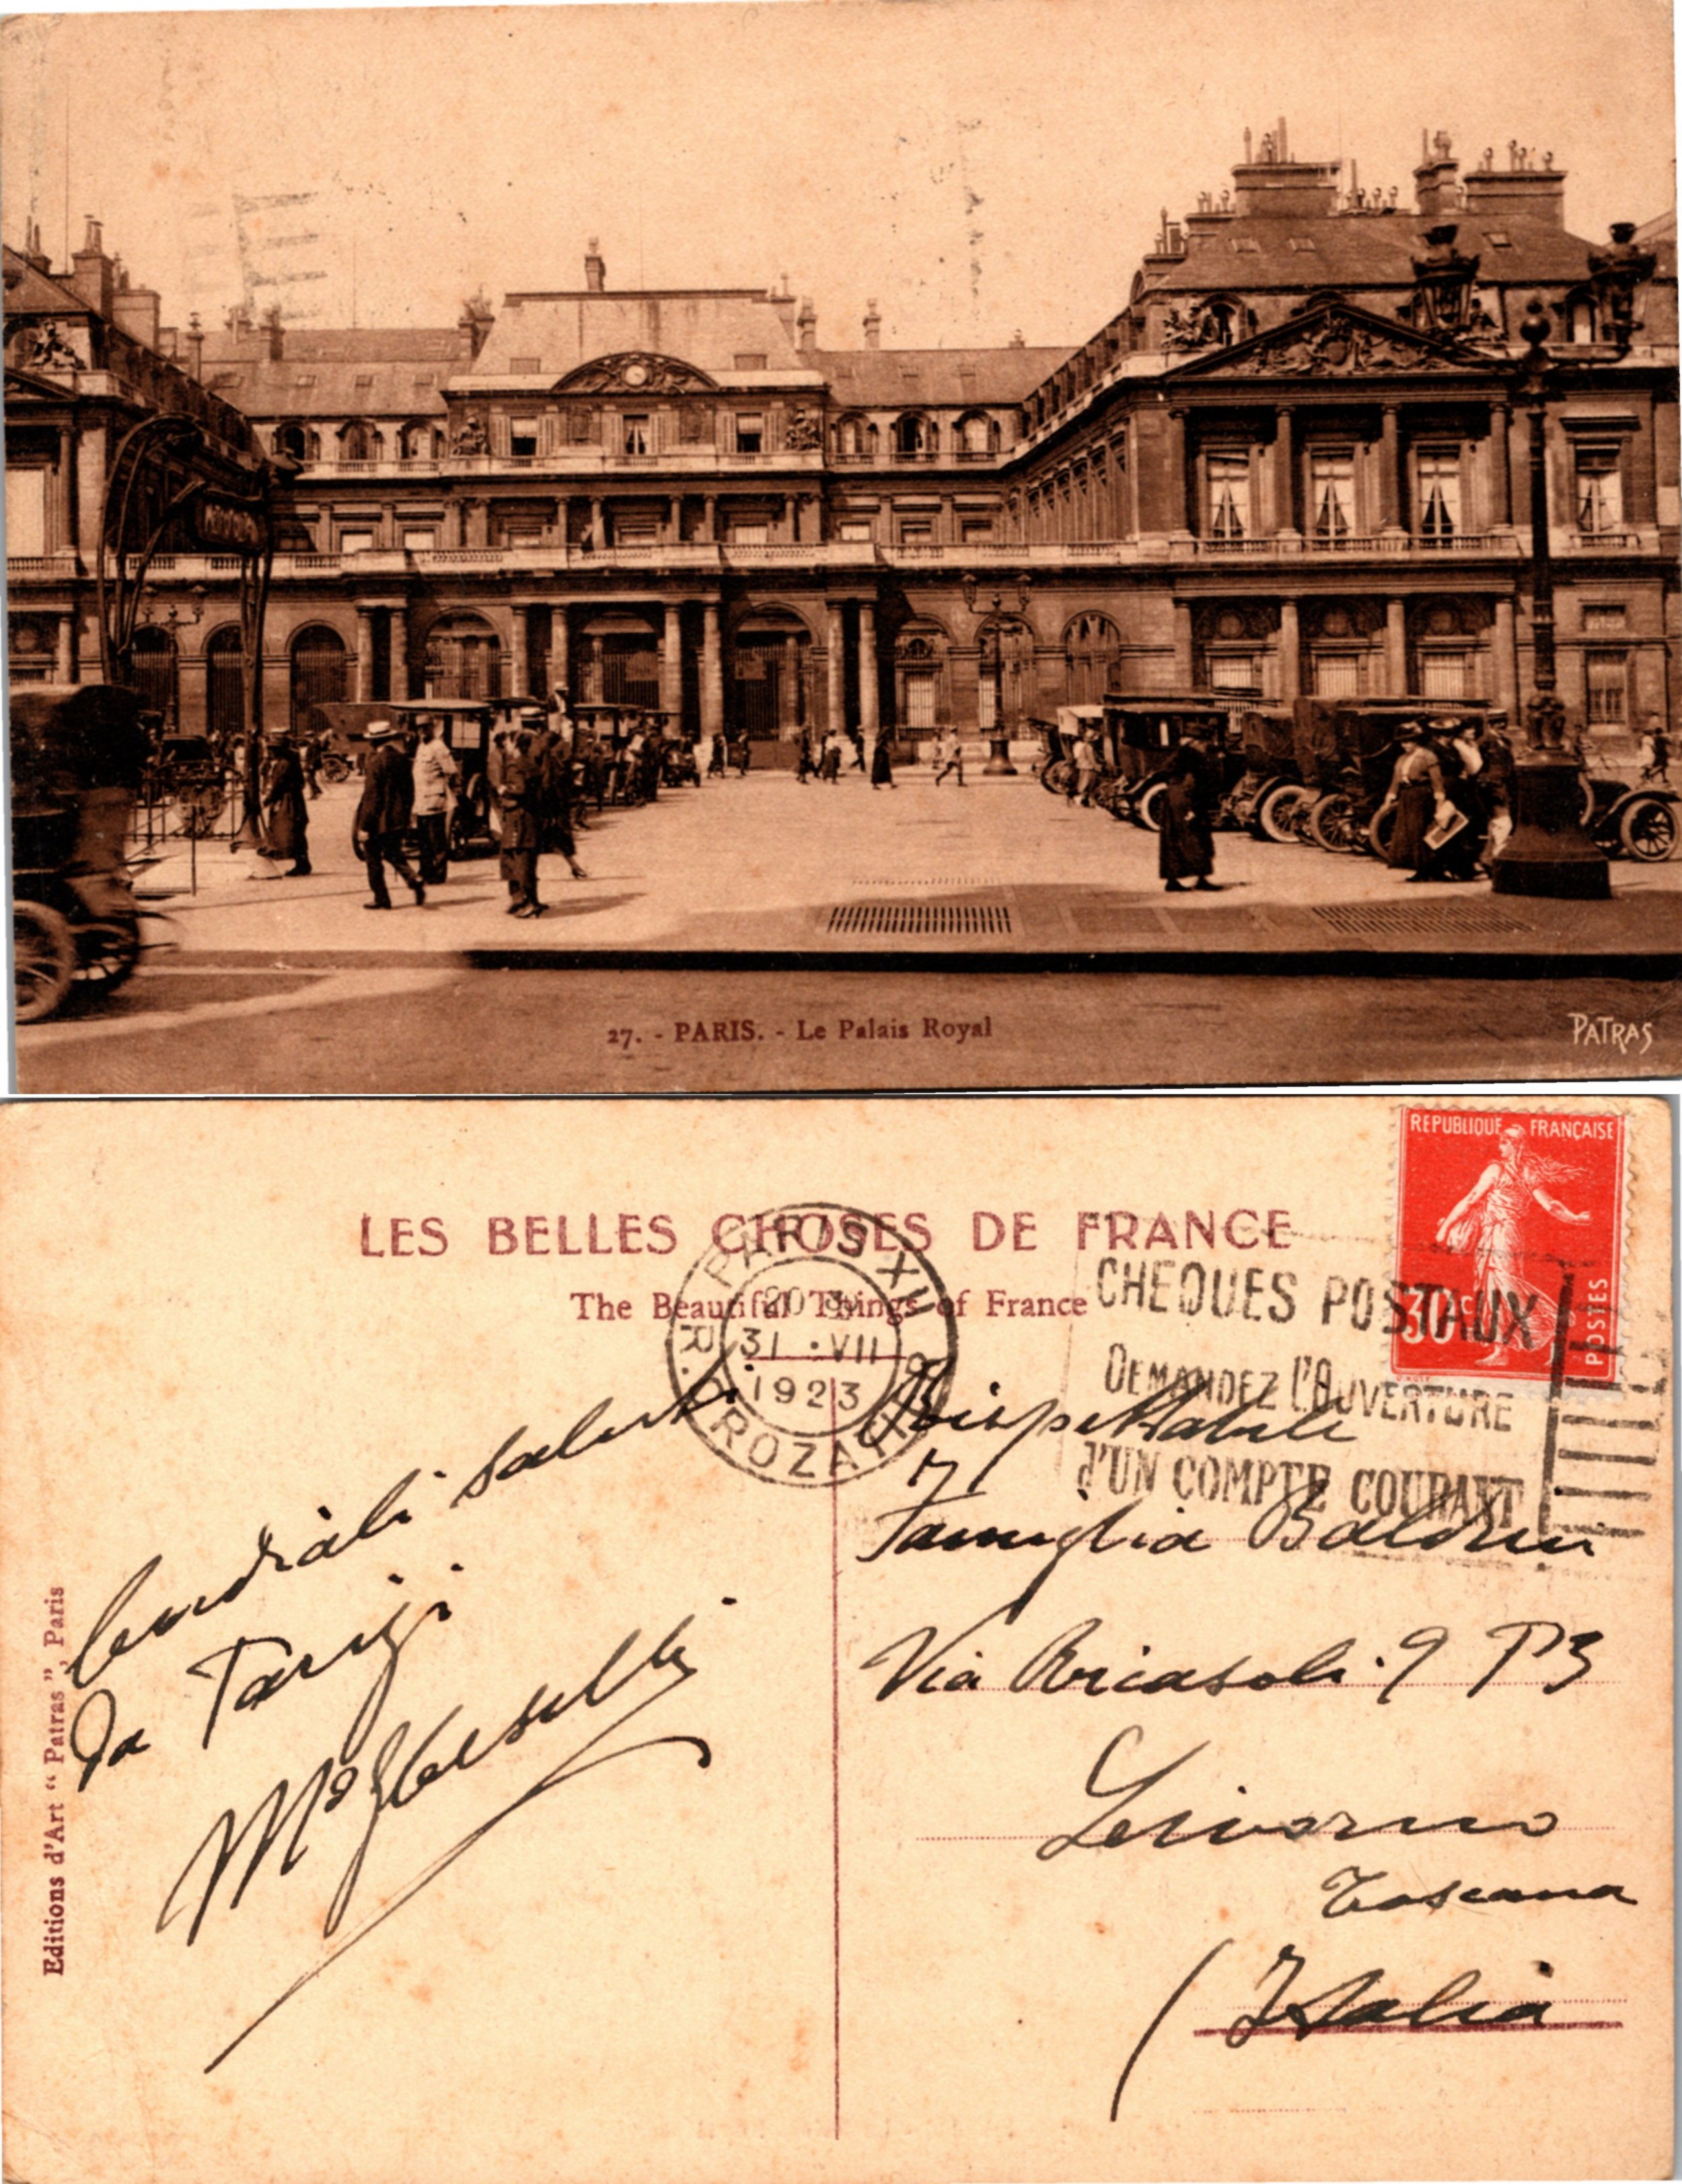 27. - PARIS. - Le Palais Royal
PATRAS
REPUBLIQUE FRANÇAISE
30c
POSTES
LES BELLES CHOSES DE FRANCE
The Beautiful Things of France
PARIS XII
31 · VII
1923
R. CROZATIER
CHEQUES POSTAUX
DEMANDEZ L'OUVERTURE
d'UN COMPTE COURANT
Cordiali saluti
da Parigi
Rispettabile
Famiglia
Via Ricasoli · 9 P3
Livorno
Toscana
(Italia
Editions d'Art "Patras", Paris